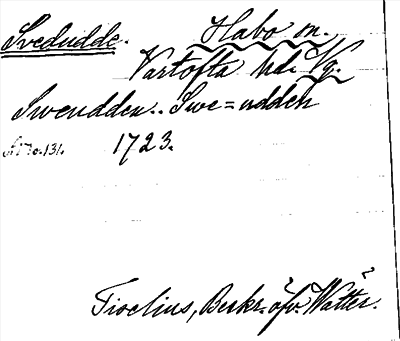 Svedudde. Habo sn.
Vartofta hd. Vg.
Swendden.. Swe=udden
1723.
Tiselius, Beskr. öfv. Watter.